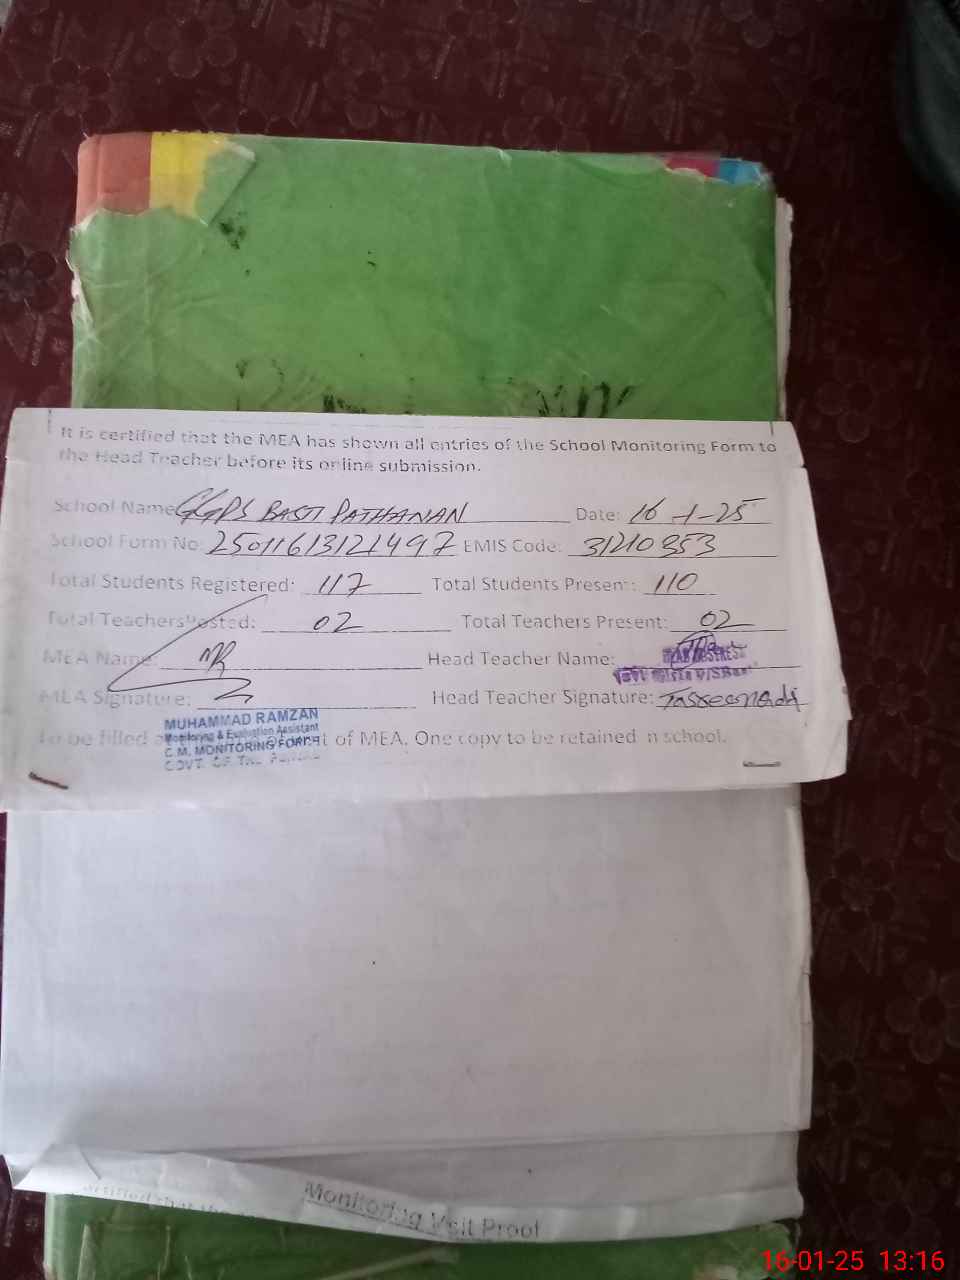 It is certified that the MEA has shown all entries of the School Monitoring Form to
the Head Teacher before its online submission.
School Name GGPS BASTI PATHANAN Date: 16-1-25
School Form No: 25011613121497 EMIS Code: 31210353
Total Students Registered: 117 Total Students Present: 110
Total Teachers Posted: 02 Total Teachers Present: 02
MEA Name: MR Head Teacher Name:
HEAD MISTRESS
MEA Signature: Head Teacher Signature:
MUHAMMAD RAMZAN
Monitoring & Evaluation Assistant
C.M. MONITORING FORCE
GOVT. OF THE PUNJAB
To be filled of MEA. One copy to be retained in school.
Monitoring Visit Proof
certified that the
16-01-25 13:16